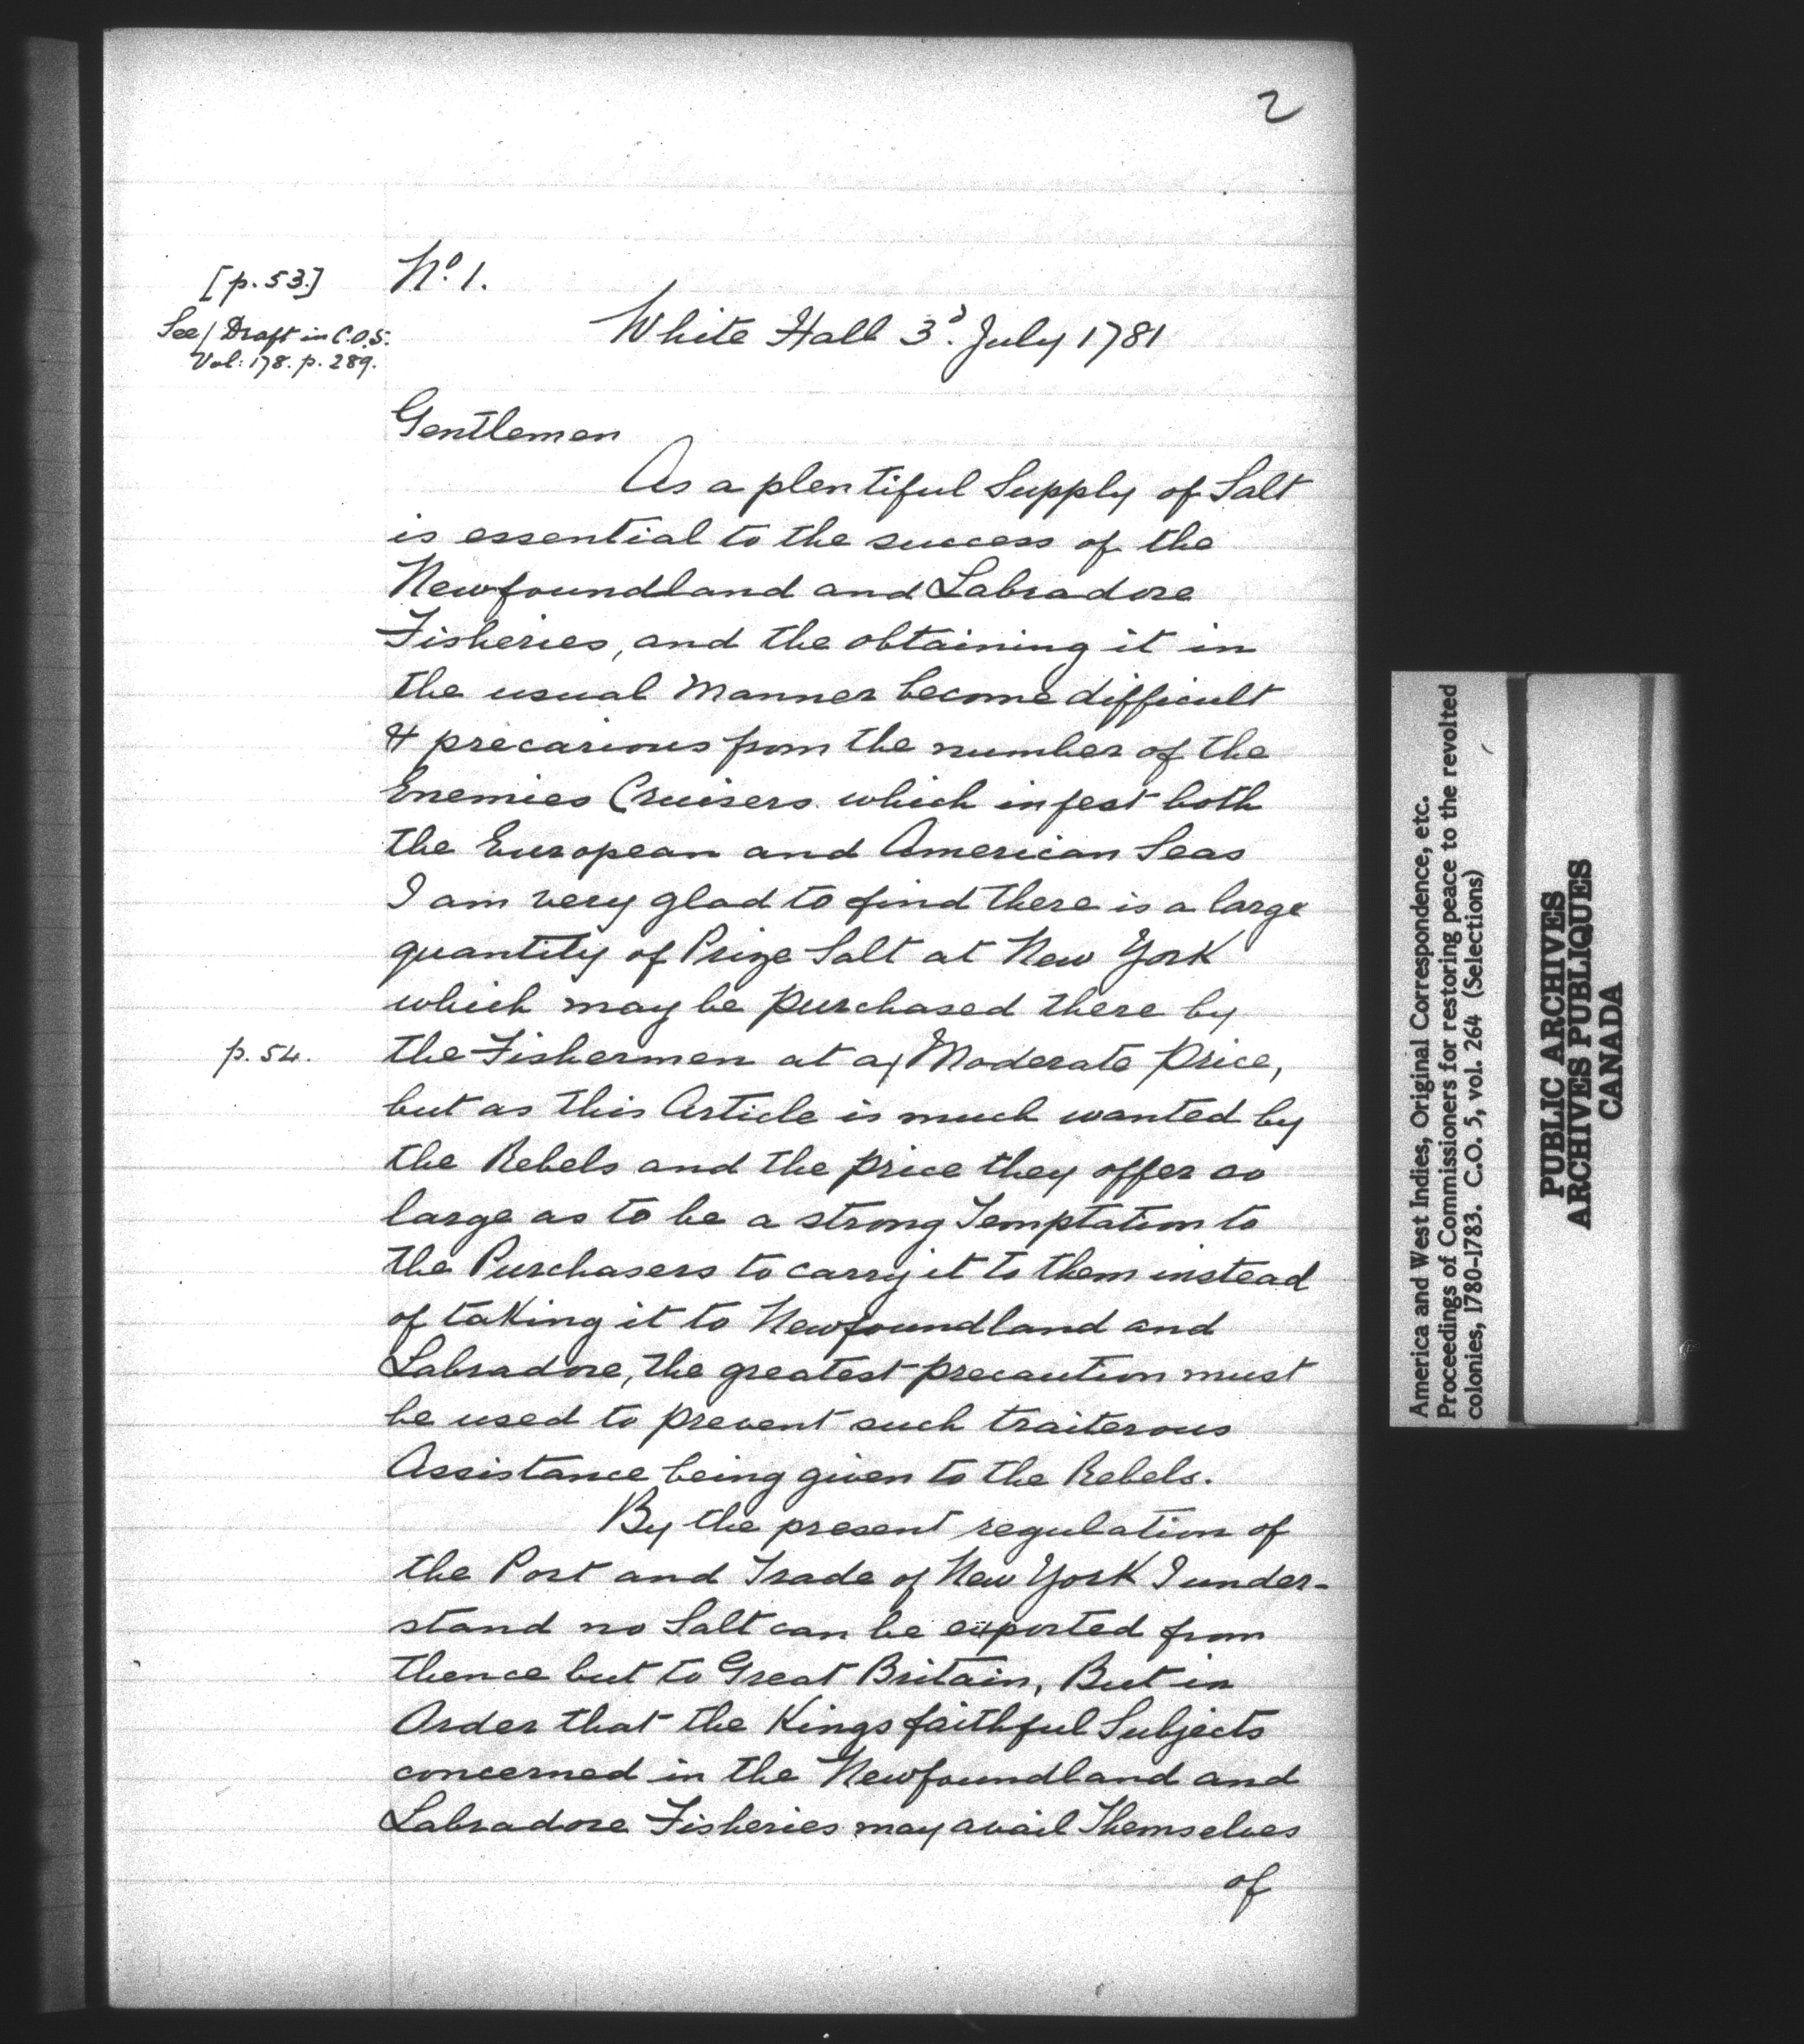 2
[p. 53.]
See/ Draft in C.O.5.
Vol: 178. p. 289.
Nº. 1.
White Hall 3ᵈ. July 1781
Gentlemen
As a plentiful Supply of Salt
is essential to the success of the
Newfoundland and Labradore
Fisheries, and the obtaining it in
the usual Manner become difficult
& precarious from the number of the
Enemies Cruisers which infest both
the European and American Seas
I am very glad to find there is a large
quantity of Prize Salt at New York
which may be purchased there by
p. 54.
the Fishermen at a/ Moderate price,
but as this Article is much wanted by
the Rebels and the price they offer so
large as to be a strong Temptation to
the Purchasers to carry it to them instead
of taking it to Newfoundland and
Labradore, the greatest precaution must
be used to prevent such traiterous
Assistance being given to the Rebels.
By the present regulation of
the Port and Trade of New York I under-
stand no Salt can be exported from
thence but to Great Britain, But in
Order that the Kings faithful Subjects
concerned in the Newfoundland and
Labradore Fisheries may avail Themselves
of
America and West Indies, Original Correspondence, etc.
Proceedings of Commissioners for restoring peace to the revolted
colonies, 1780-1783. C.O. 5, vol. 264 (Selections)
PUBLIC ARCHIVES
ARCHIVES PUBLIQUES
CANADA